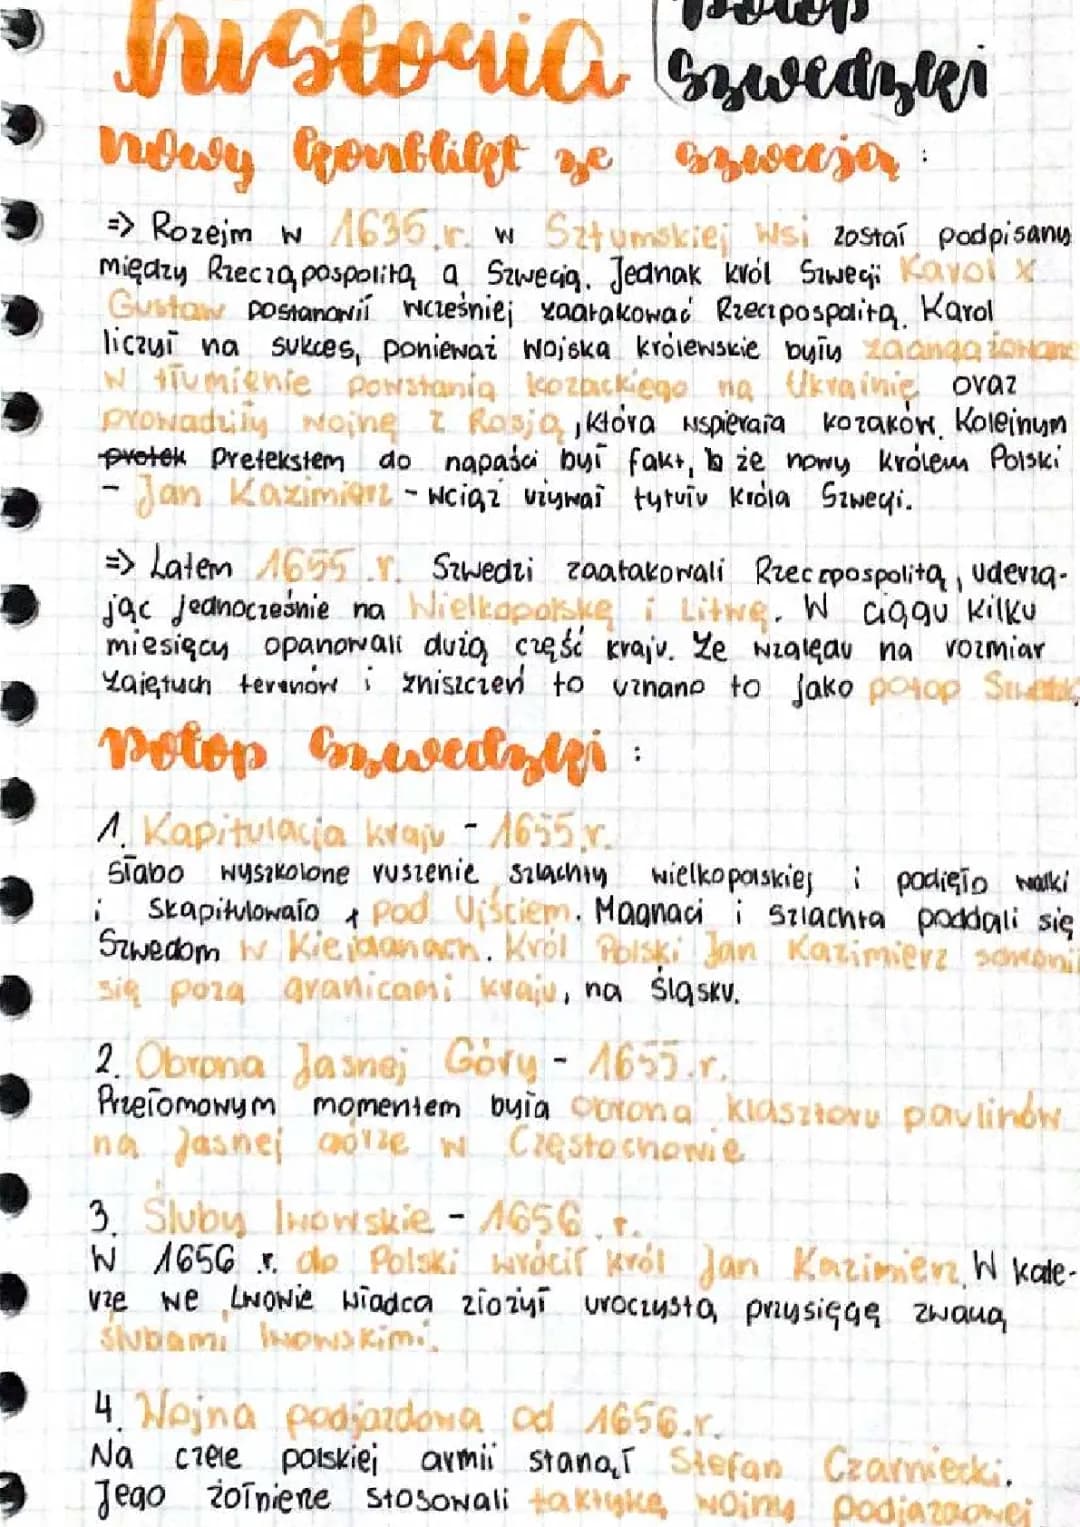 historia
Potop
szwedzki
nowy konflikt ze szwecją :
=> Rozejm w 1635 r. w Sztumskiej Wsi został podpisany
między Rzecząpospolitą a Szwecją. Jednak król Szwecji Karol X
Gustaw postanowił wcześniej zaatakować Rzeczpospolitą. Karol
liczył na sukces, ponieważ wojska królewskie były zaangażowane
w tłumienie powstania kozackiego na Ukrainie oraz
prowadziły wojnę z Rosją, która wspierała kozaków. Kolejnym
pretek Pretekstem do napaści był fakt, że nowy królem Polski
- Jan Kazimierz - wciąż używał tytułu króla Szwecji.
=> Latem 1655 .r. Szwedzi zaatakowali Rzeczpospolitą, uderza-
jąc jednocześnie na Wielkopolskę i Litwę. W ciągu kilku
miesięcy opanowali dużą część kraju. Ze względu na rozmiar
zajętych terenów i zniszczeń to uznano to jako potop
potop szwedzki :
1. Kapitulacja kraju - 1655 r.
Słabo wyszkolone ruszenie szlachty wielkopolskiej i podjęło walki
i skapitulowało pod Ujściem. Magnaci i szlachta poddali się
Szwedom w Kiejdanach. Król Polski Jan Kazimierz schronił
się poza granicami kraju, na śląsku.
2. Obrona Jasnej Góry - 1655.r.
Przełomowym momentem była obrona klasztoru paulinów
na Jasnej górze w Częstochowie
3. Śluby lwowskie - 1656 .r.
W 1656 .r. do Polski wrócił król Jan Kazimierz. W kate-
rze we Lwowie władca złożył uroczystą przysięgę zwaną
ślubami lwowskimi.
4. Wojna podjazdowa od 1656.r.
Na czele polskiej armii stanął Stefan Czarniecki.
Jego żołnierze stosowali taktykę wojny podjazdowej